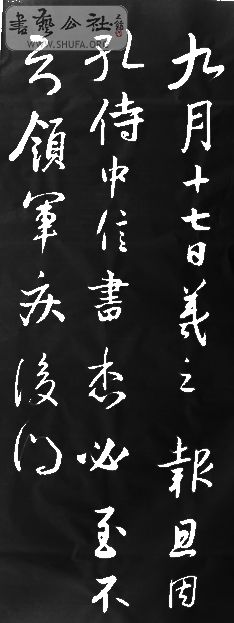 書藝公社
WWW.SHUFA.ORG
九月十七日羲之報且因
孔侍中信書想必至不
知領軍疾後問